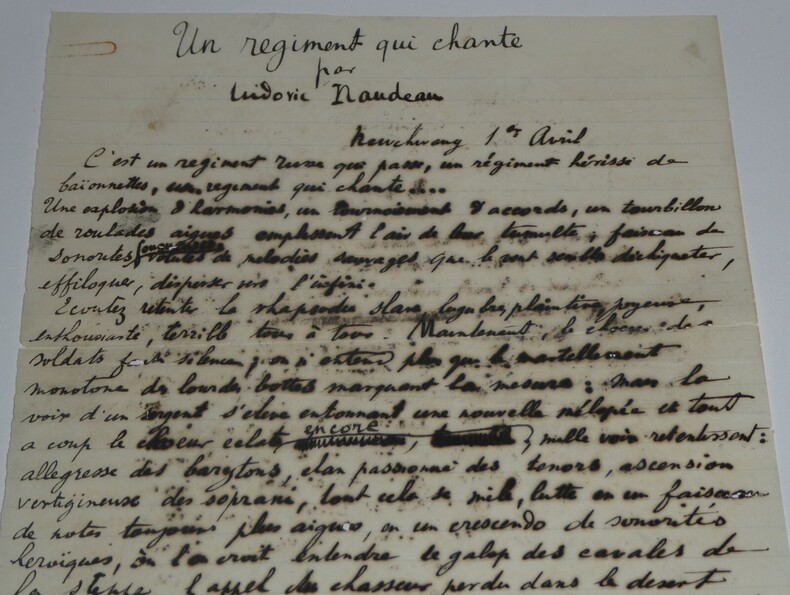 Un regiment qui chante
par
Ludovic Naudeau
Newchwang 1er Avril
C'est un regiment russe qui passe, un régiment hérissé de
baïonnettes, un regiment qui chante....
Une explosion d'harmonies, un tournoiement d'accords, un tourbillon
de roulades aigues emplissent l'air de leur tumulte; faisceau de
sonorités, de melodies sauvages que le vent semble déchiqueter,
effiloquer, disperser vers l'infini.
Ecoutez retentir la rhapsodie slave, lugubre, plaintive, joyeuse,
enthousiaste, terrible tour à tour. Maintenant, le choeur des
soldats fait silence; on n'entend plus que le martellement
monotone des lourdes bottes marquant la mesure: mais la
voix d'un sergent s'eleve entonnant une nouvelle mélopée et tout
a coup le choeur eclate encore, mille voix retentissent:
allegresse des barytons, elan passionné des tenors, ascension
vertigineuse des soprani, tout cela se mêle, lutte en un faisceau
de notes toujours plus aigues, en un crescendo de sonorités
heroïques, où l'on croit entendre le galop des cavales de
la steppe, l'appel du chasseur perdu dans le desert